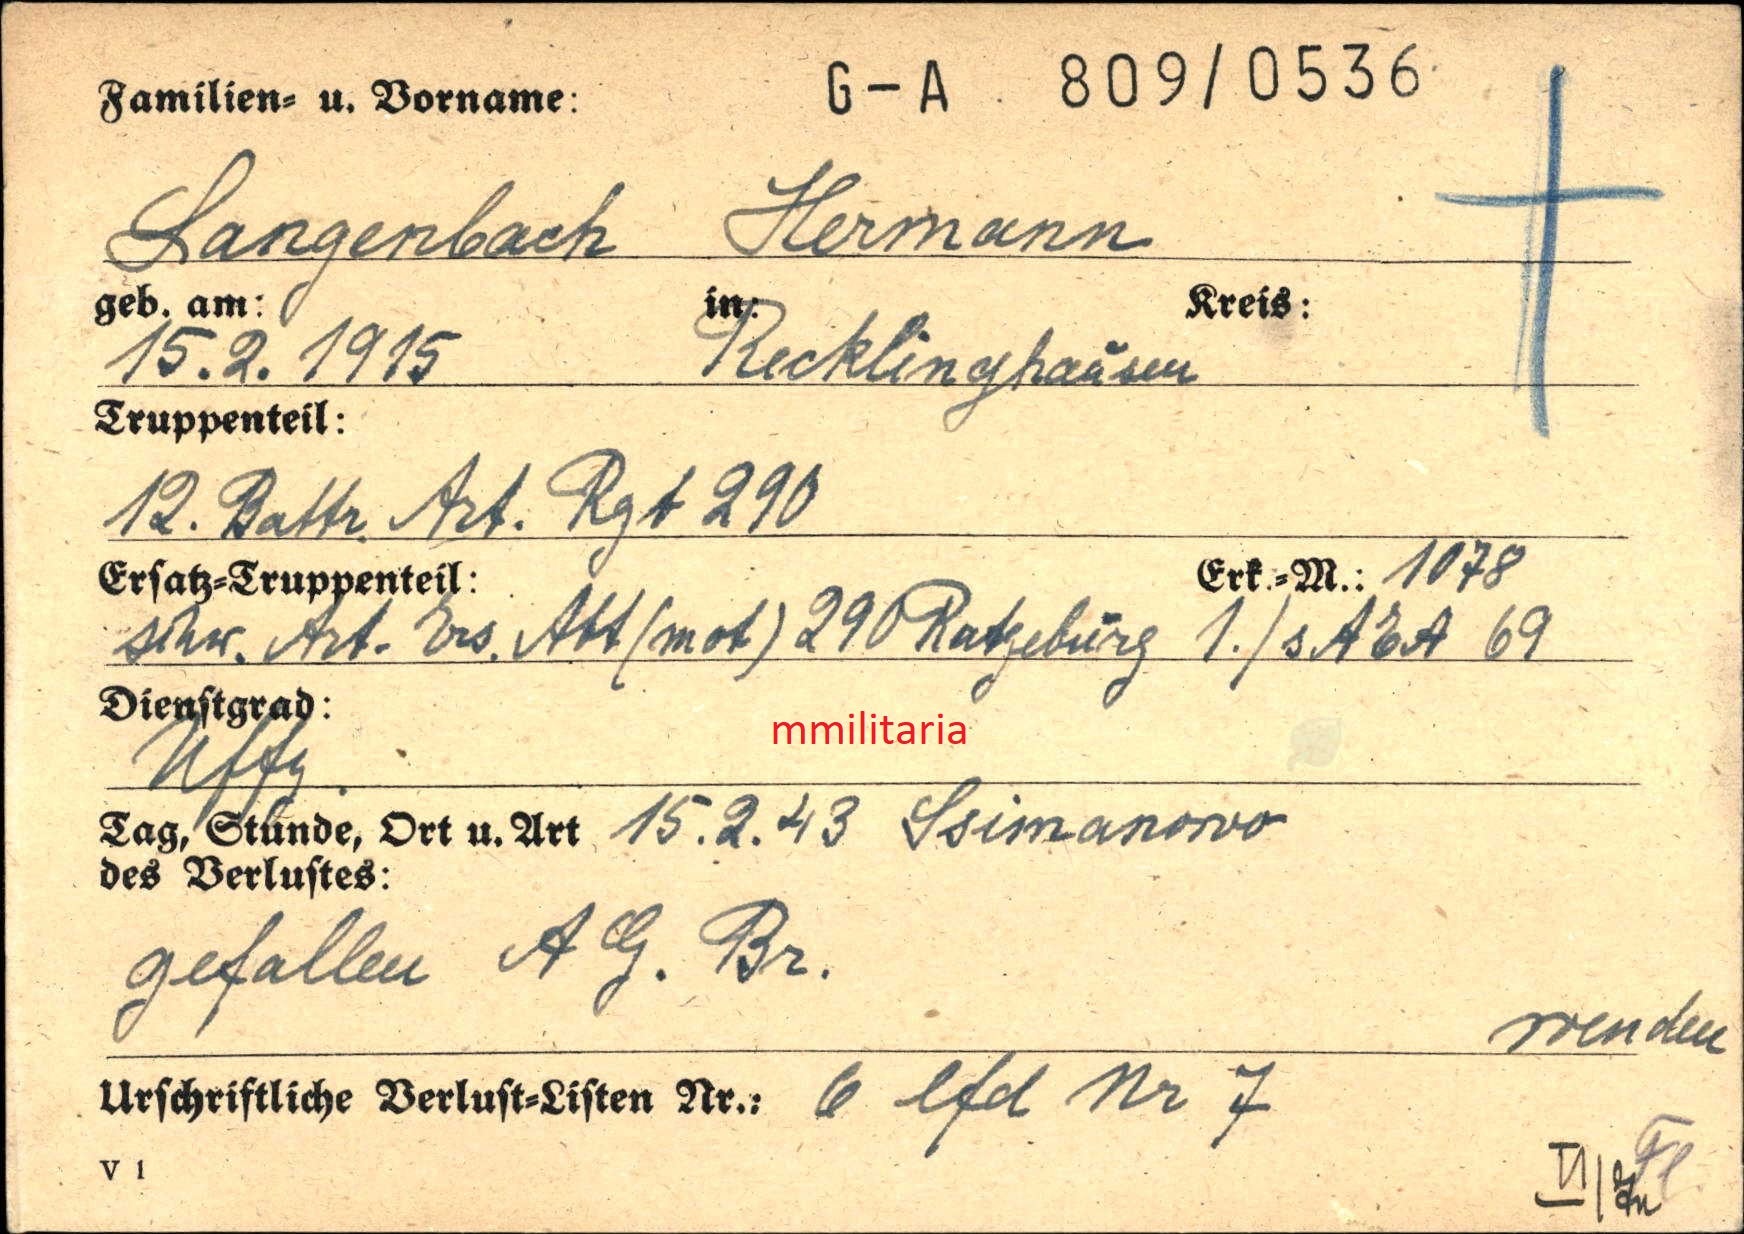 G-A 809/0536
Familien- u. Vorname:
Langenbach Hermann
geb. am: in: Kreis:
15.2.1915 Recklinghausen
Truppenteil:
12. Battr. Art. Rgt 290
Ersatz-Truppenteil: Erk.-M.: 1078
schw. Art. Ers. Abt (mot) 290 Ratzeburg 1./s A E A 69
Dienstgrad:
Uffz.
mmilitaria
Tag, Stunde, Ort u. Art 15.2.43 Ssimanowo
des Verlustes:
gefallen A G. Br.
wenden
Urschriftliche Verlust-Listen Nr.: 6 lfd Nr 7
V 1